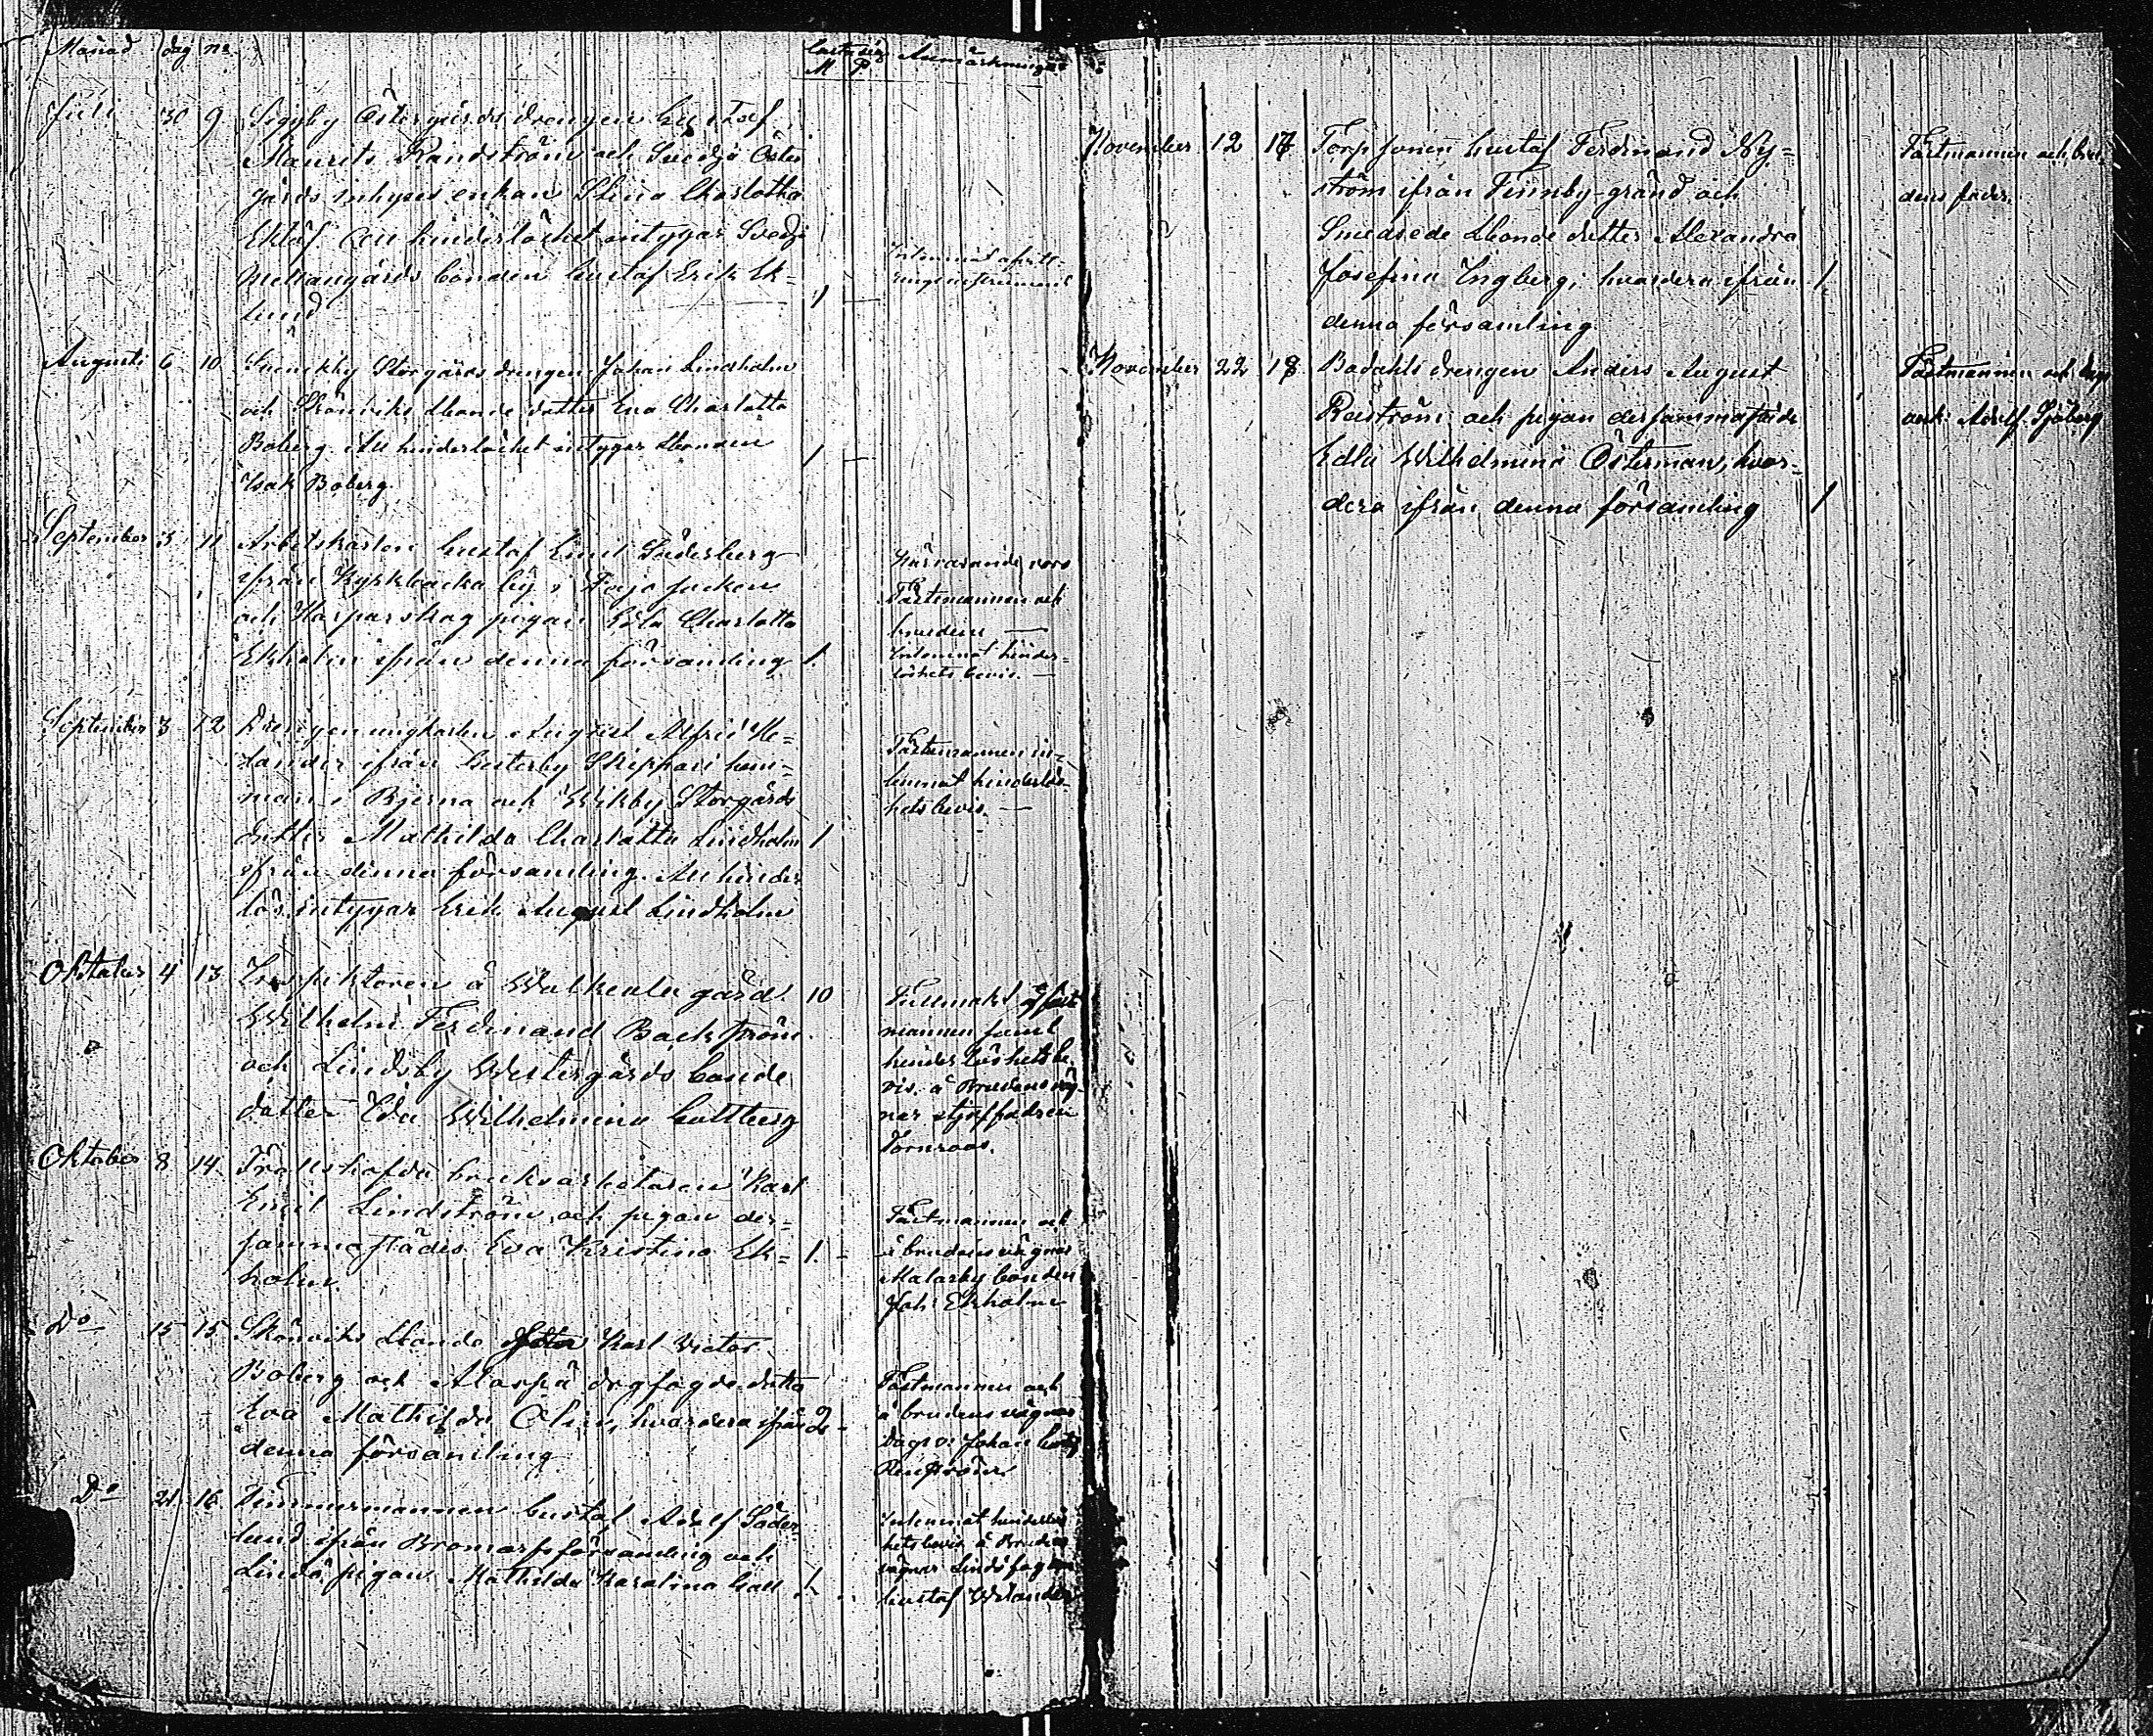 Månad dag no
M P Anmärkningar
Juli 30 9 Sigyby Östergårds drengen Gustaf
Maurits Randström och Svedjo Öster
gårds inhyses enkan Stina Charlotta
Eklöf. Om hinderlöshet intygar Svedjo
Mellangårds bonden Gustaf Erik Ek=
lund 1 —
Inlemnat afvitt-
rings instrument
Augusti 6 10 Storgårds drengen Johan Lindholm
och Skönviks Lbonde dotter Eva Charlotta
Boberg. Om hinderlöshet intygar Lbonden 1 —
Isak Boberg.
September 3 11 Arbetskarlen Gustaf Emil Söderberg
ifrån Kyrkbacka by i socken
och Harparskog pigan Edla Charlotta
Ekholm ifrån denna församling 1.
Närvarande voro
Fästemannen och
brudens —
Inlemnat hinder=
löshets bevis. —
September 3 12 Drengen ungkarlen August Alfrid He=
lander ifrån Gusterby Skippari hem=
man i Bjerna och Wikby Storgårds
dotter Mathilda Charlotta Lindholm 1
ifrån denna församling. Om hinder
lös. intygar Erik August Lindholm
Fästemannen in=
lemnat hinderlös-
hets bevis. —
Oktober 4 13 Inspektoren å gård 10
Wilhelm Ferdinand Backström
och Lindsby Westergårds bonde
dotter Eda Wilhelmina Gultberg
Fullmakt af fäst
mannen samt
hinderlöshets be
vis. å Brudens väg-
nar styffadren
Törnroos.
Oktober 8 14. Trollshofda bruksarbetaren Karl
Emil Lindström och pigan der=
sammastädes Eva Kristina Ek= 1. -
holm.
Fästmannen och
å brudens vägnar
Malarby bonden
Joh: Ekholm
Do 15 15 Skönviks Lbonde Karl Victor
Boberg och dagfogde dotter
Eva Mathilda Olin, hvardera ifrån 2 -
denna församling
Fästmannen och
å brudens vägnar
Johan
Renström
Do 21 16 Timmermannen Gustaf Adolf Söder
lund ifrån Bromarf församling och
Lindö pigan Mathilda Karolina 1.
Inlemnat hinderlös
hets bevis å Brudens
vägnar Lindö
Gustaf Welander
November 12 17 Torp sonen Gustaf Ferdinand Ny=
ström ifrån Finnby-gränd och
Smedsede Lbonde dotter Alexandra
Josefina Ingberg; hvardera ifrån 1.
denna församling.
Fästmannen och bru
dens fader.
November 22 18 Bodahls drengen Anders August
Renström och pigan dersammastädes
Edla Wilhelmina Österman, hvar=
dera ifrån denna församling 1
Fästmannen och
Adolf Sjöberg